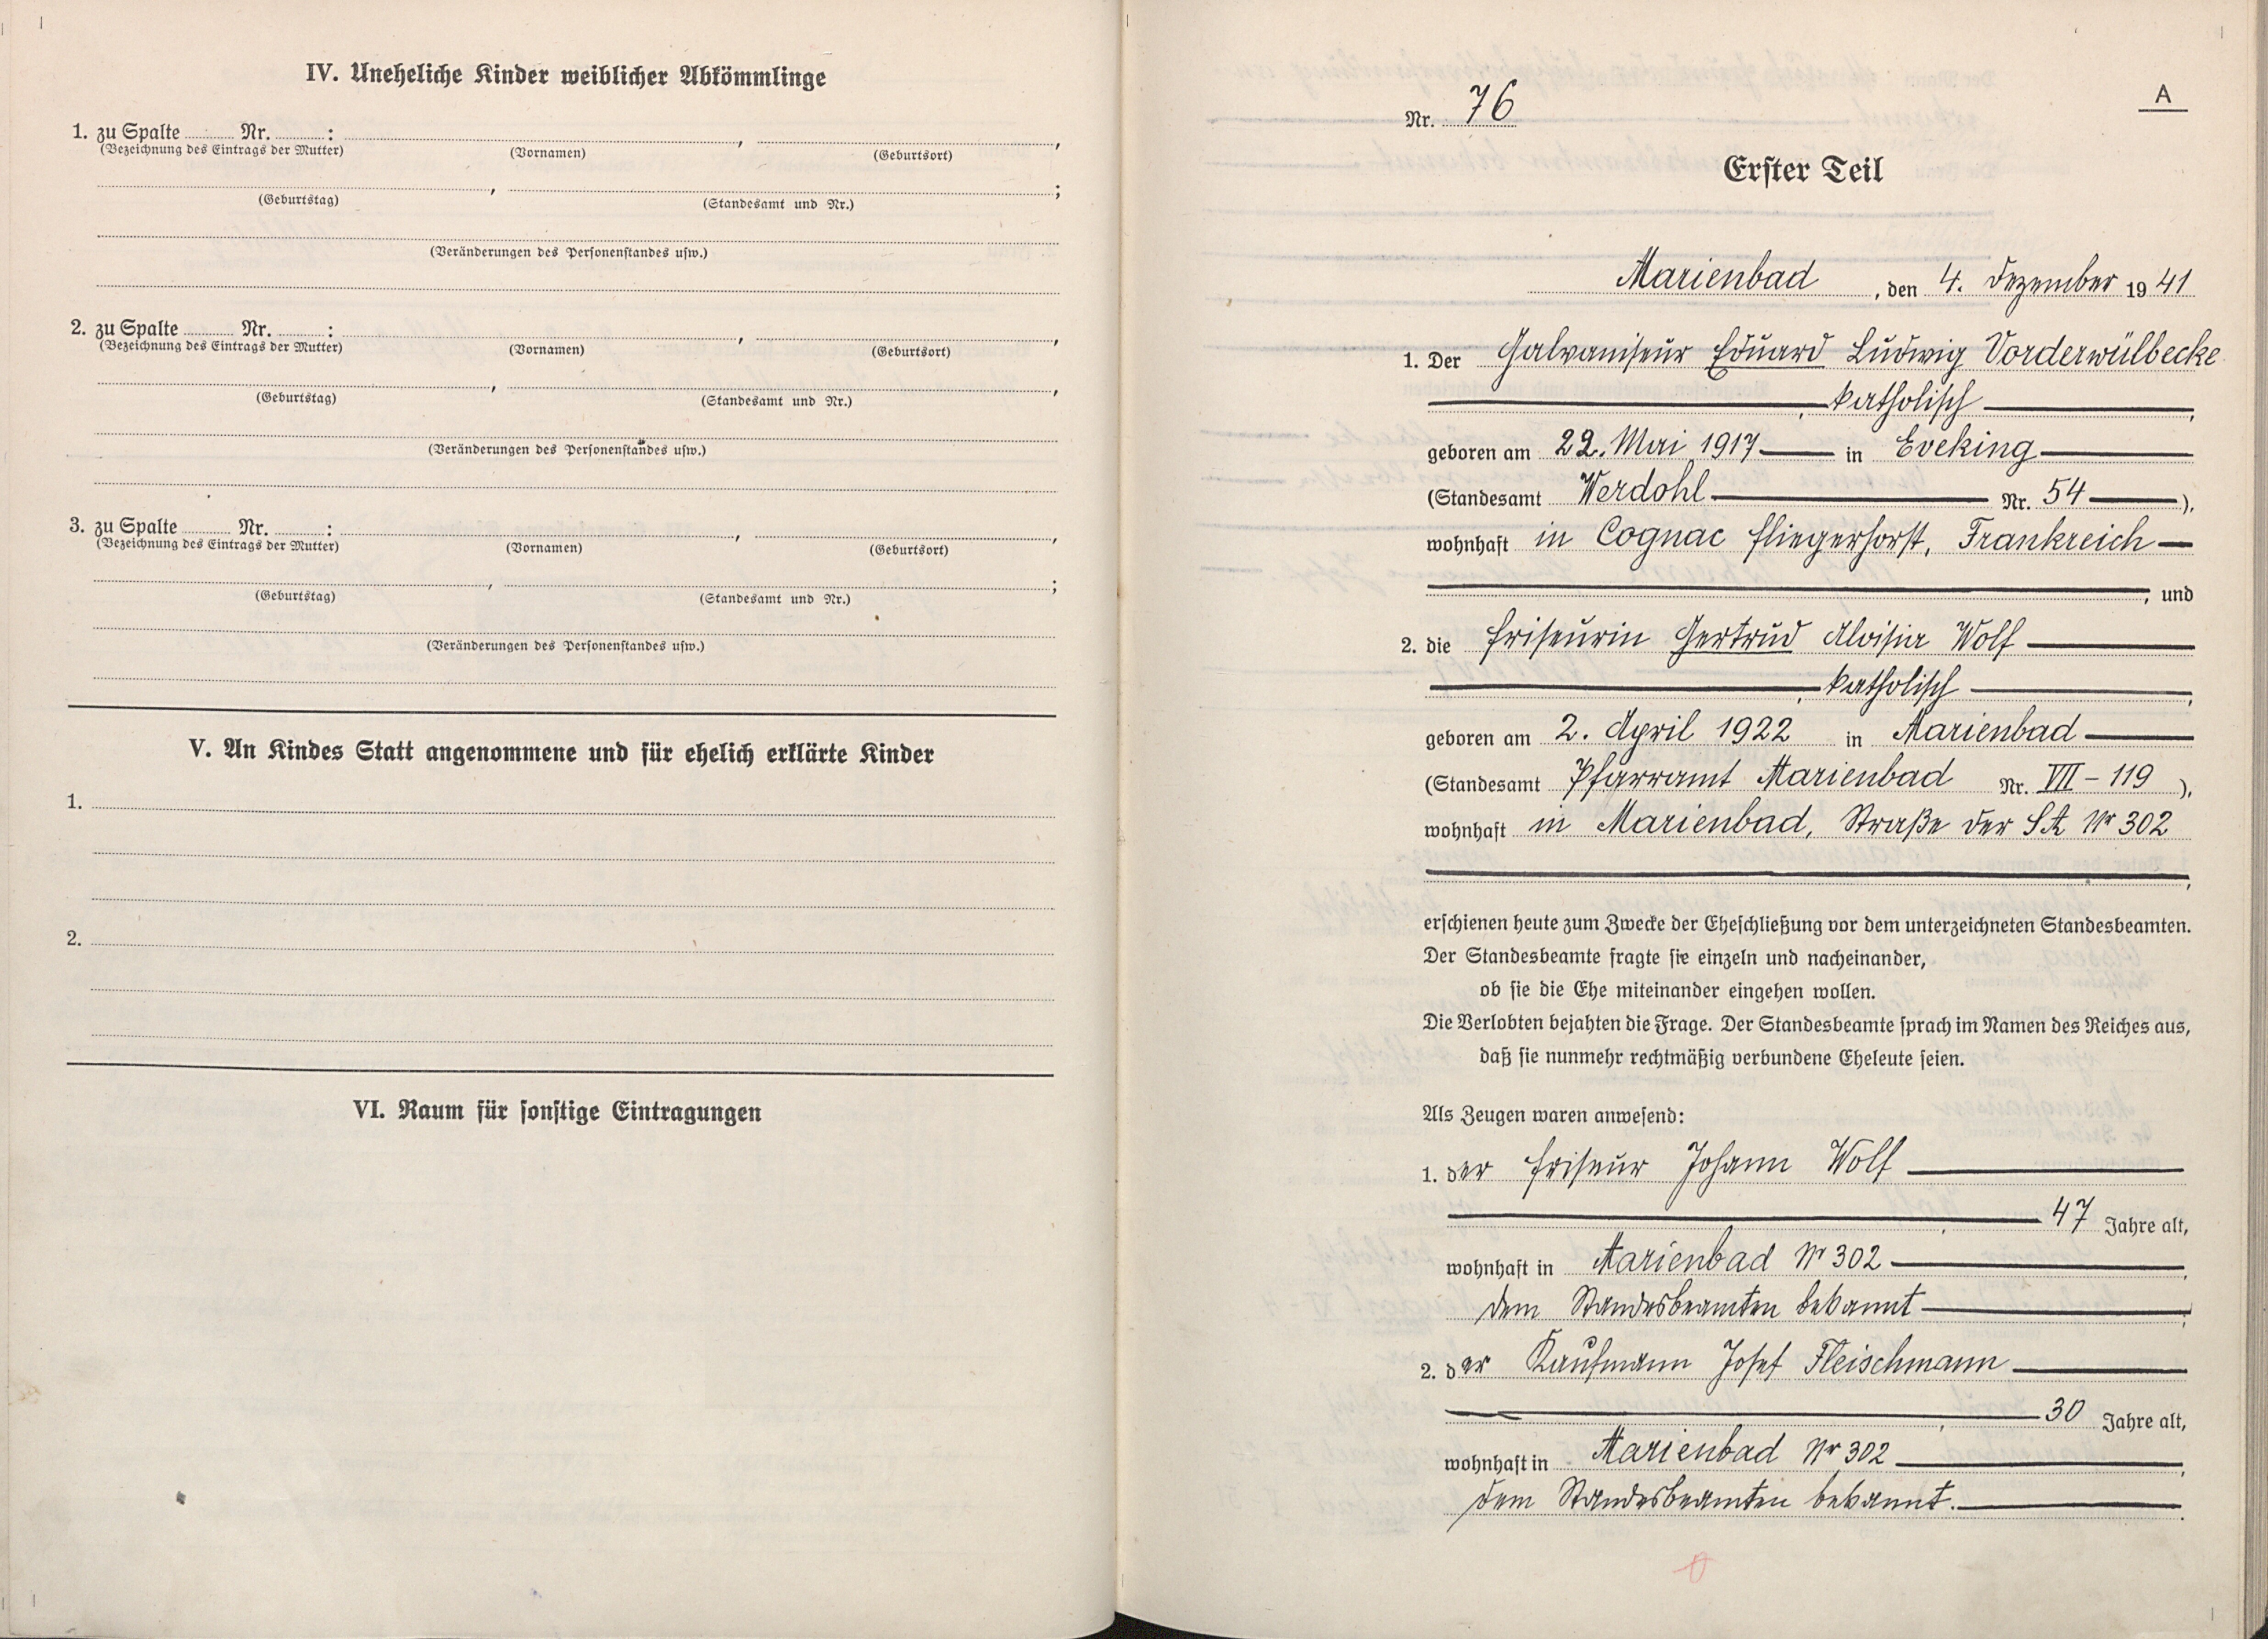 IV. Uneheliche Kinder weiblicher Abkömmlinge
1. zu Spalte ........ Nr. ........ :
(Bezeichnung des Eintrags der Mutter) (Vornamen) , (Geburtsort) ,
(Geburtstag) , (Standesamt und Nr.) ;
(Veränderungen des Personenstandes usw.)
2. zu Spalte ........ Nr. ........ :
(Bezeichnung des Eintrags der Mutter) (Vornamen) , (Geburtsort) ,
(Geburtstag) , (Standesamt und Nr.) ,
(Veränderungen des Personenstandes usw.)
3. zu Spalte ........ Nr. ........ :
(Bezeichnung des Eintrags der Mutter) (Vornamen) , (Geburtsort) ,
(Geburtstag) , (Standesamt und Nr.) ;
(Veränderungen des Personenstandes usw.)
V. An Kindes Statt angenommene und für ehelich erklärte Kinder
1.
2.
VI. Raum für sonstige Eintragungen
A
Nr. 76
Erster Teil
Marienbad, den 4. Dezember 1941
1. Der Galvaniseur Eduard Ludwig Vorderwülbecke
, katholisch ,
geboren am 22. Mai 1917 in Eveking
(Standesamt Werdohl Nr. 54 ),
wohnhaft in Cognac Fliegerhorst, Frankreich
, und
2. die Friseurin Gertrud Aloisia Wolf
, katholisch ,
geboren am 2. April 1922 in Marienbad
(Standesamt Pfarramt Marienbad Nr. VII - 119 ),
wohnhaft in Marienbad, Straße der SA Nr 302
,
erschienen heute zum Zwecke der Eheschließung vor dem unterzeichneten Standesbeamten.
Der Standesbeamte fragte sie einzeln und nacheinander,
ob sie die Ehe miteinander eingehen wollen.
Die Verlobten bejahten die Frage. Der Standesbeamte sprach im Namen des Reiches aus,
daß sie nunmehr rechtmäßig verbundene Eheleute seien.
Als Zeugen waren anwesend:
1. der Friseur Johann Wolf
, 47 Jahre alt,
wohnhaft in Marienbad Nr 302 ,
dem Standesbeamten bekannt ;
2. der Kaufmann Josef Fleischmann
, 30 Jahre alt,
wohnhaft in Marienbad Nr 302 ,
dem Standesbeamten bekannt.